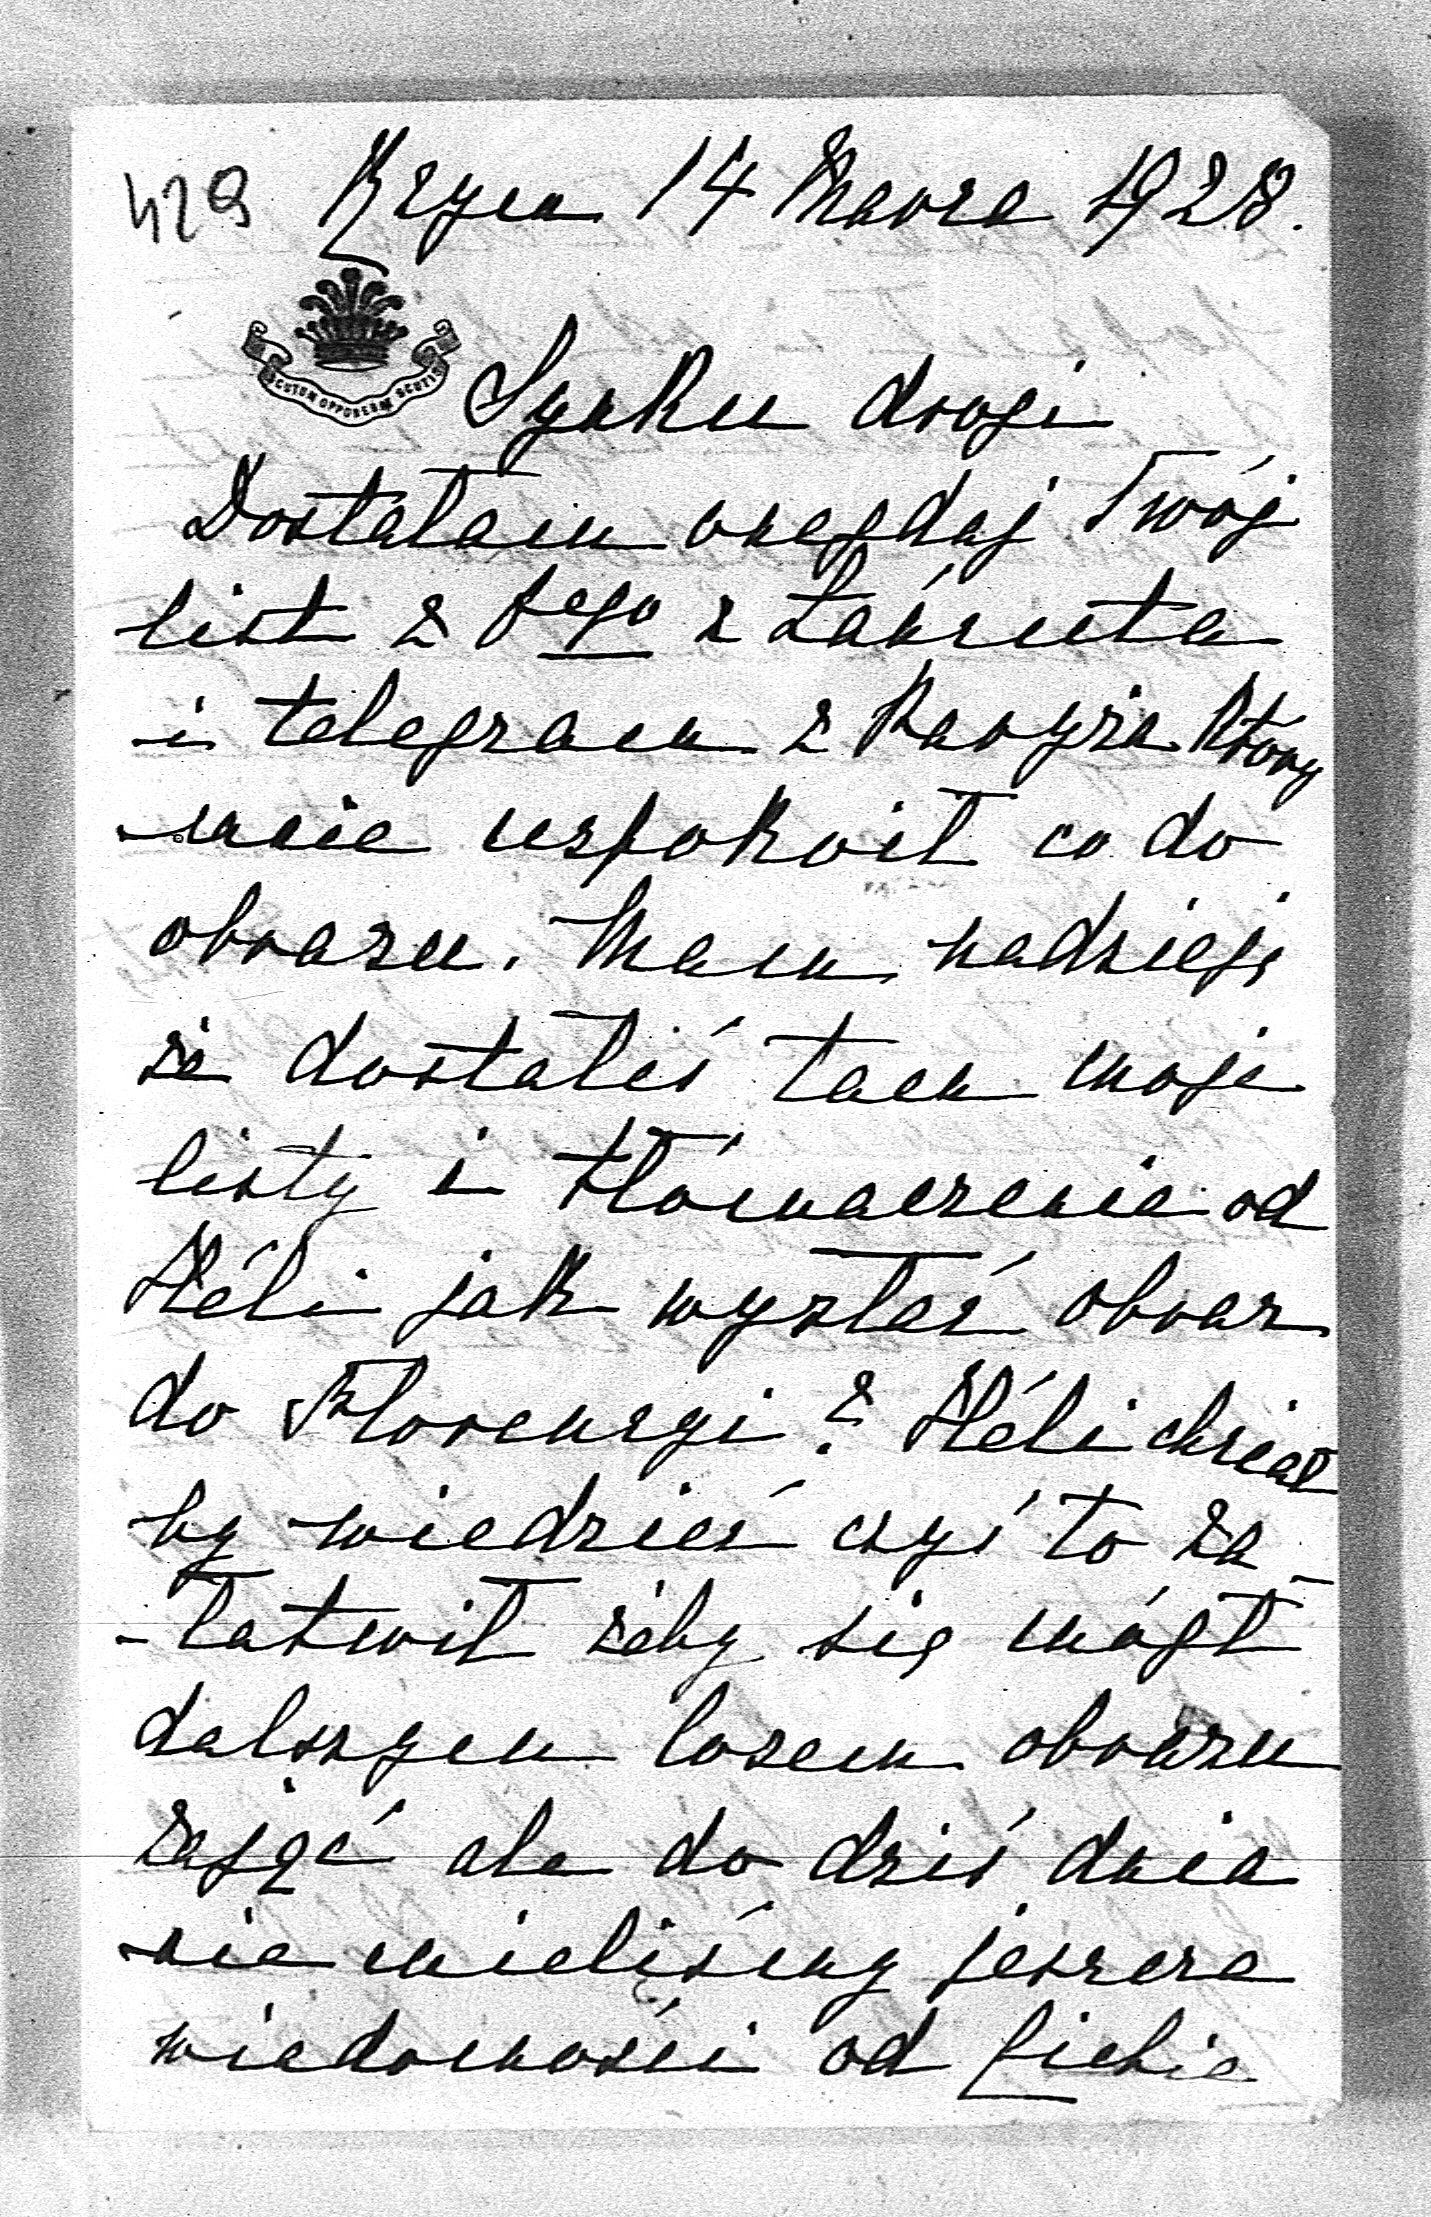 429 Rzym 14 Marca 1928.
SCUTUM OPPONEBAT SCUTIS
Synku drogi
Dostałam onegdaj Twój
list z 8ego z Łańcuta
i telegram z Paryża który
mnie uspokoił co do
obrazu. Mam nadzieję
że dostałeś tam moje
listy i tłómaczenie od
Héli jak wysłać obraz
do Florencyi? Héli chciał
by wiedzieć czyś to za-
-łatwił żeby się mógł
dalszym losem obrazu
zająć ale do dziś dnia
nie mieliśmy jeszcze
wiadomości od Ciebie